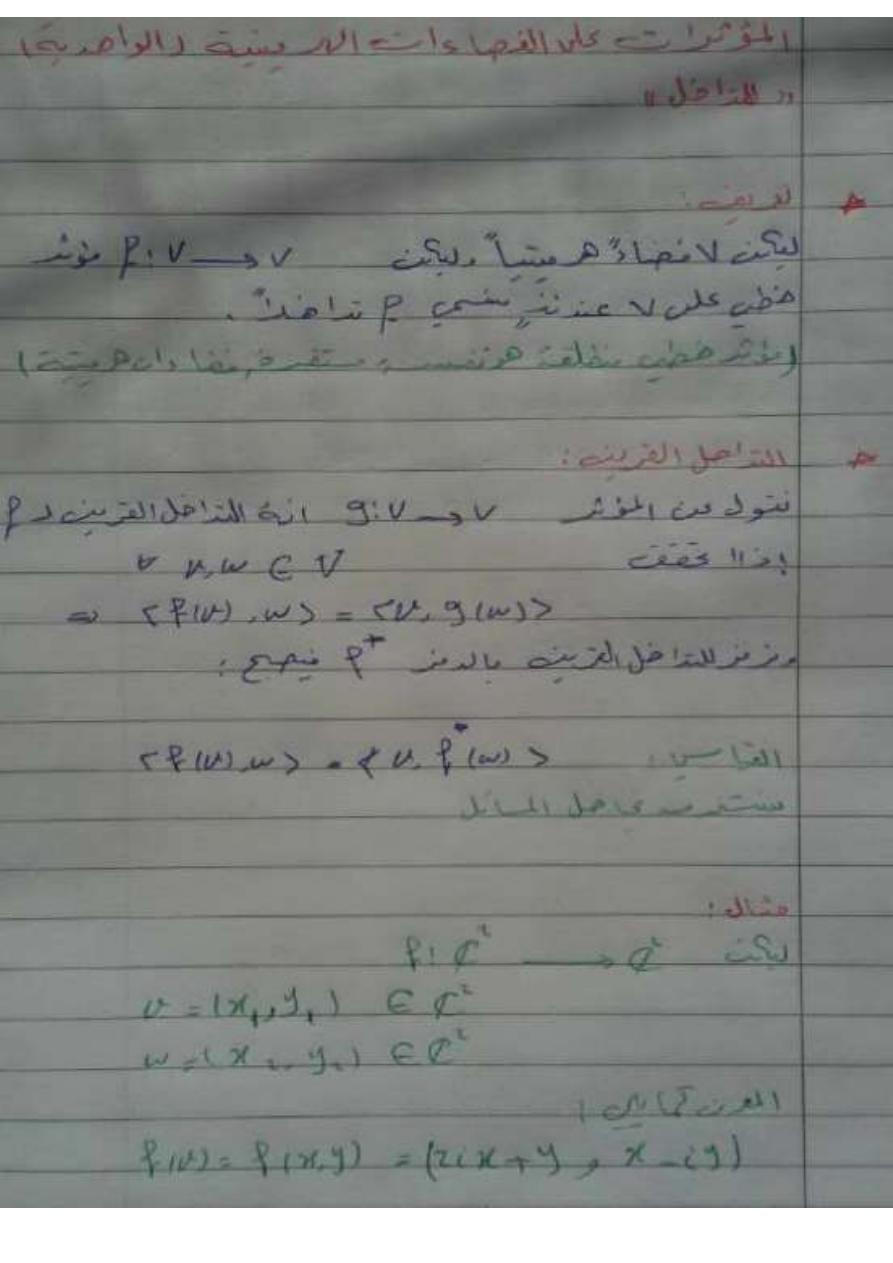 المؤثرات على الفضاءات الهرميتية (الواحدية)
"التداخل"
تعريف:
ليكن V فضاءً هرميتياً وليكن f: V → V مؤثر
خطي على V عندئذٍ يسمى f تداخلاً.
(مؤثر خطي منطلقة هو نفسه مستقره فضاءات هرميتية)
التداخل القرين:
نقول عن المؤثر g: V → V انه التداخل القرين لـ f
إذا حقق ∀ v, w ∈ V
⇒ <f(v), w> = <v, g(w)>
ونرمز للتداخل القرين بالرمز f* فيصبح:
<f(v), w> = <v, f*(w)>
المسائل
مثال:
ليكن f: ℂ² → ℂ²
v = (x₁, y₁) ∈ ℂ²
w = (x₂, y₂) ∈ ℂ²
المعرف كمايلي:
f(v) = f(x,y) = (2ix + y, x - iy)